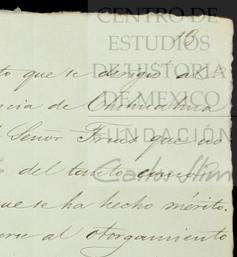 CENTRO DE
ESTUDIOS
DE HISTORIA
DE MEXICO
FUNDACIÓN
Carlos Slim
13
to que se dirigió al
ncia de Chihuahua
Señor Frias que
del tanto
que se ha hecho mérito.
erse al otorgamiento